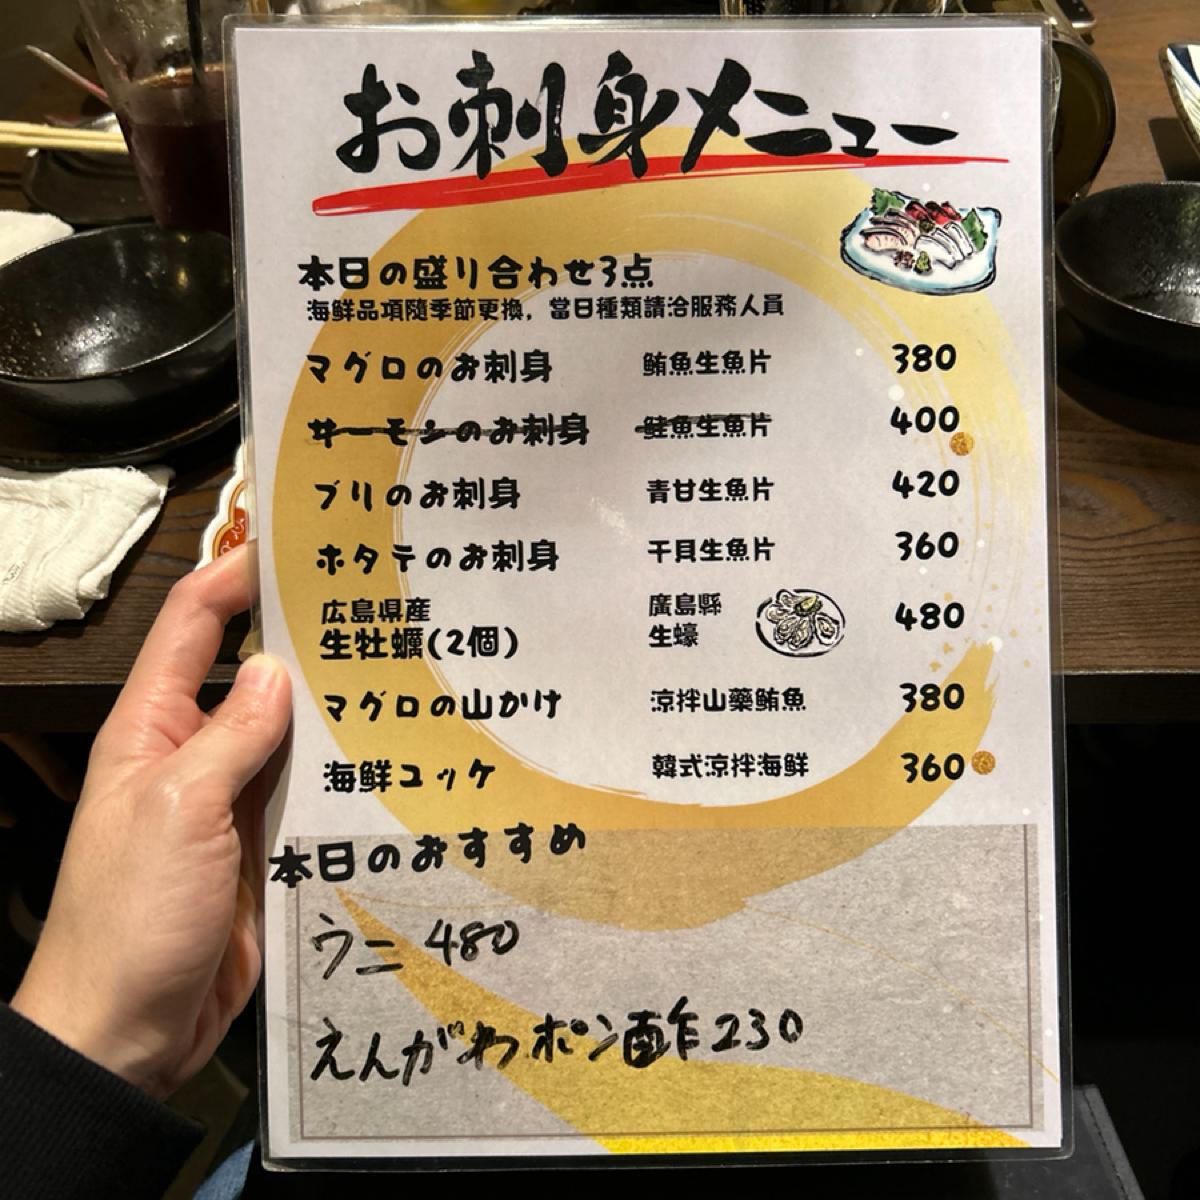 お刺身メニュー
本日の盛り合わせ3点
海鮮品項隨季節更換，當日種類請洽服務人員
マグロのお刺身 鮪魚生魚片 380
サーモンのお刺身 鮭魚生魚片 400
ブリのお刺身 青甘生魚片 420
ホタテのお刺身 干貝生魚片 360
広島県産 廣島縣
生牡蠣(2個) 生蠔 480
マグロの山かけ 涼拌山藥鮪魚 380
海鮮ユッケ 韓式涼拌海鮮 360
本日のおすすめ
ウニ 480
えんがわポン酢 230